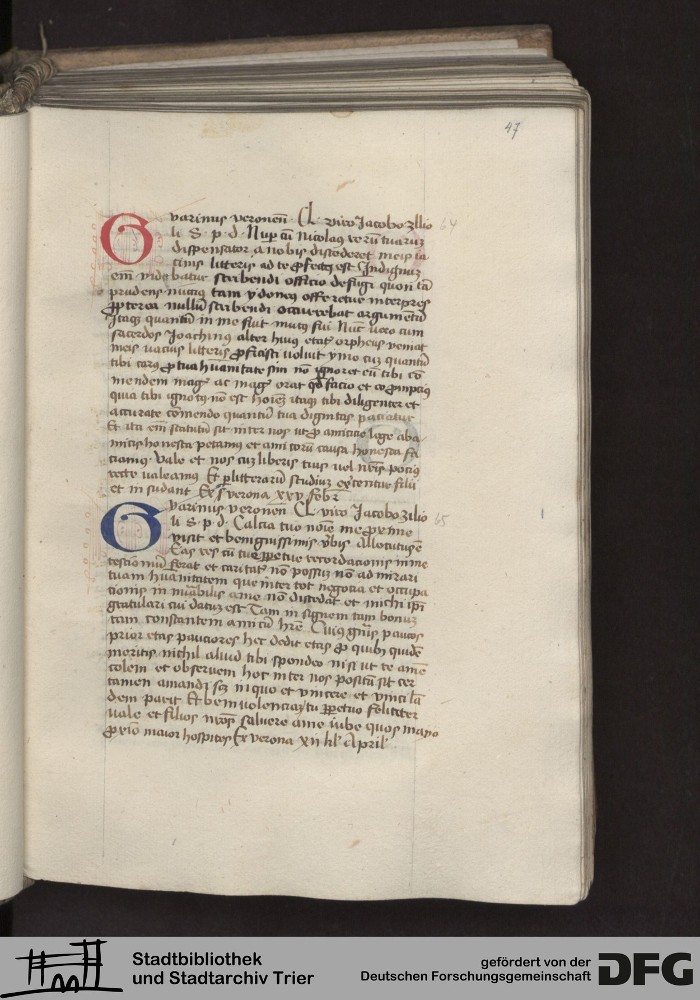 47
Guarinus veronen̄. Cl. viro Jacobo zilio 64
li S. p. d. Nup cū Nicolaus rerū tuaruȝ
dispensator a nobis discederet meis ia
cinis litteris ad te ꝓfectus est Indignuȝ
em̄ videbatur scribendi officio defugi quon tā
prudens nūcius tam ydoneus offerretur interpres
ꝓpterea nullū scribendi occurrebat argumētū
Itaqȝ quantū in me fuit mutus fui Nūc vero cum
sacerdos Joachinus alter huius etatis orpheus veniat
meis vacuus litteris ꝓficisci voluit ymo cuȝ quantū
tibi carus ꝓ tua hūanitate sim nō ignoret eū tibi cō
mendem mage ac mage orat qd̄ facio et eo promptius
quia tibi ignotus nō est hoiēȝ itaqȝ tibi diligenter et
accurate cōmendo quantū tua dignitas patiatur
Et ita em̄ statutū sit inter nos ut ꝓ amicicie lege ab a
micis honesta petamus et amicorū causa honesta fa
ciamus. Vale et nos cuȝ liberis tuis vel n̄ris potius
recte valeamus Et ꝑ litterarū studiuȝ excitentur filii
et in sudant Ex verona xxv febr̄
Guarinus veronen̄. Cl. viro Jacobo zilio 65
li S. p. d. Calcia tuo noīe me proxime
visit et benignissimis ỽbis allocutus ē
Eas res cū tuȩ ꝑpetue recordacionis in me
testimoniū ferat et caritatis nō possuȝ nō admirari
tuam hūanitatem que inter tot negocia et occupa
cionis in
 a me nō discedat et michi ip̄i
gratulari cui datus est Tam insignem tam bonuȝ
tam constantem amicū hr̄e. Cuius gn̄is paucos
prior etas pauciores hec dedit etas ꝓ quibȝ quidē
meritis nichil aliud tibi spondeo nisi ut te amē
colem et observem hoc inter nos positū sit cer
tamen amandi sȝ in quo et vincere et vinci lā
dem parit Et benivolencia tu ꝑpetuo feliciter
vale et filios n̄ros salvere a me iube quos mayo
 maior hospites Ex verona xii kl̄ Aprilˀ
Stadtbibliothek
und Stadtarchiv Trier
gefördert von der
Deutschen Forschungsgemeinschaft
DFG